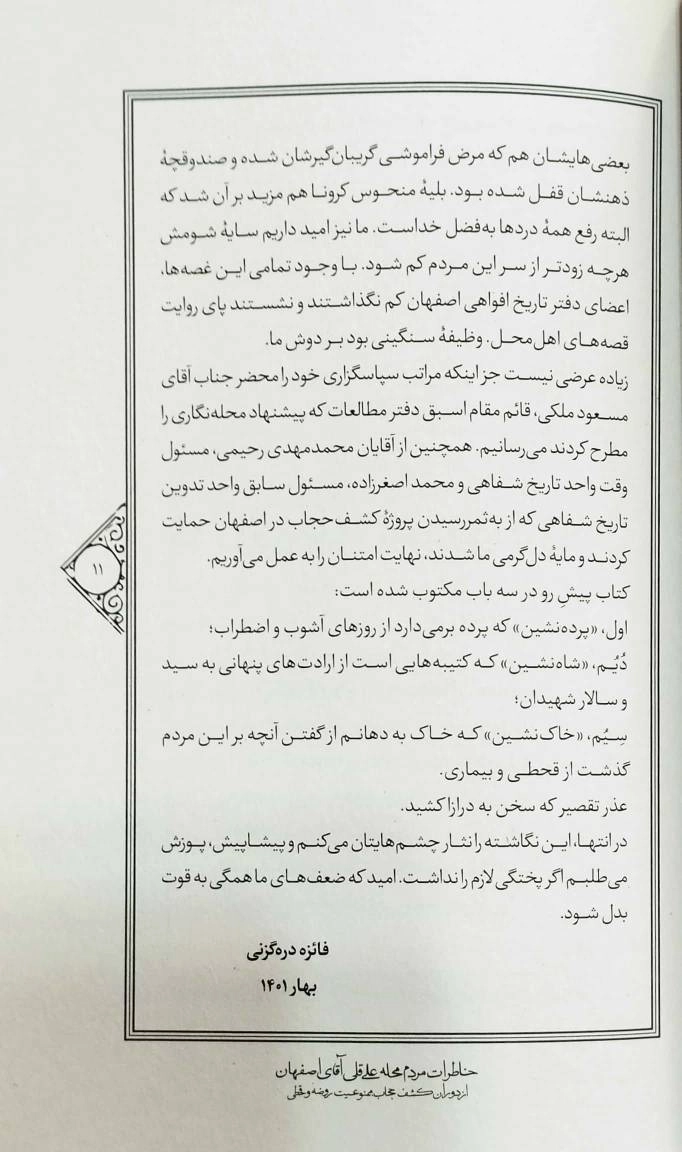 بعضی‌هایشان هم که مرض فراموشی گریبان‌گیرشان شده و صندوقچهٔ
ذهنشان قفل شده بود. بلیهٔ منحوس کرونا هم مزید بر آن شد که
البته رفع همهٔ دردها به‌فضل خداست. ما نیز امید داریم سایهٔ شومش
هرچه زودتر از سر این مردم کم شود. با وجود تمامی این غصه‌ها،
اعضای دفتر تاریخ افواهی اصفهان کم نگذاشتند و نشستند پای روایت
قصه‌های اهل‌محل. وظیفهٔ سنگینی بود بر دوش ما.
زیاده عرضی نیست جز اینکه مراتب سپاسگزاری خود را محضر جناب آقای
مسعود ملکی، قائم مقام اسبق دفتر مطالعات که پیشنهاد محله‌نگاری را
مطرح کردند می‌رسانیم. همچنین از آقایان محمدمهدی رحیمی، مسئول
وقت واحد تاریخ شفاهی و محمد اصغرزاده، مسئول سابق واحد تدوین
تاریخ شفاهی که از به‌ثمررسیدن پروژهٔ کشف‌حجاب در اصفهان حمایت
کردند و مایهٔ دل‌گرمی ما شدند، نهایت امتنان را به عمل می‌آوریم.
۱۱
کتاب پیشِ رو در سه باب مکتوب شده است:
اول، «پرده‌نشین» که پرده برمی‌دارد از روزهای آشوب و اضطراب؛
دُیُم، «شاه‌نشین» که کتیبه‌هایی است از ارادت‌های پنهانی به سید
و سالار شهیدان؛
سِیُم، «خاک‌نشین» که خاک به دهانم از گفتن آنچه بر این مردم
گذشت از قحطی و بیماری.
عذر تقصیر که سخن به درازا کشید.
در انتها، این نگاشته را نثار چشم‌هایتان می‌کنم و پیشاپیش، پوزش
می‌طلبم اگر پختگی لازم را نداشت. امید که ضعف‌های ما همگی به قوت
بدل شود.
فائزه دره‌گزنی
بهار ۱۴۰۱
خاطرات مردم محله علی قلی آقای اصفهان
از دوران کشف حجاب، ممنوعیت روضه و قحطی